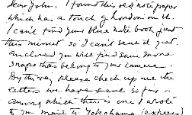 Dear John. I found this old note paper
which has a touch of London on it.
I can't find your blue nib book just
this minute so I can't send it yet.
Enclosed you will find some more
snaps that belong to your camera.
By the way please check up on the
letters we have sent so far in
among which there is one I wrote
to you mailed to Yokohama